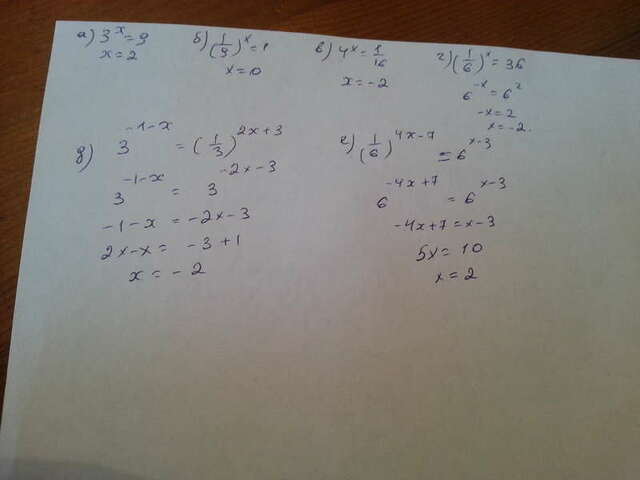 а) 3^x = 9
x = 2
б) (1/9)^x = 1
x = 0
в) 4^x = 1/16
x = -2
г) (1/6)^x = 36
6^-x = 6^2
-x = 2
x = -2.
д) 3^-1-x = (1/3)^2x+3
3^-1-x = 3^-2x-3
-1-x = -2x-3
2x-x = -3+1
x = -2
е) (1/6)^4x-7 = 6^x-3
6^-4x+7 = 6^x-3
-4x+7 = x-3
5x = 10
x = 2